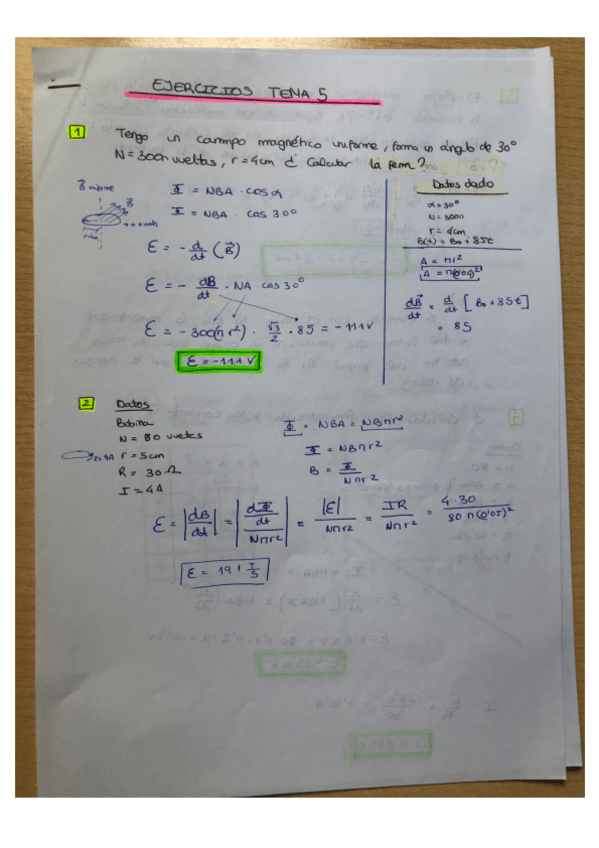 EJERCICIOS TEMA 5
1
Tengo un campo magnético uniforme, forma un ángulo de 30º
N = 300n vueltas, r = 4cm ¿ Calcular la fem?
B
Φ = NBA · cos α
Φ = NBA · cos 30º
ε = - d/dt (B⃗)
ε = - dB/dt · NA cos 30º
ε = - 300(π r²) · √3/2 · 85 = -111V
ε = -111 V
Datos dado
α = 30º
N = 300n
r = 4cm
B(t) = B₀ + 85t
A = πr²
A = π(0'04)²
dB⃗/dt = d/dt [B₀ + 85t]
= 85
2
Datos
Bobina
N = 80 vueltas
r = 5cm
R = 30 Ω
I = 4A
Φ = NBA = NBπr²
Φ = NBπr²
B = Φ/Nπr²
ε = |dB/dt| = |dΦ/dt / Nπr²| = |ε|/Nπr² = IR/Nπr² = 4·30/80π(0'05)²
ε = 191 T/S